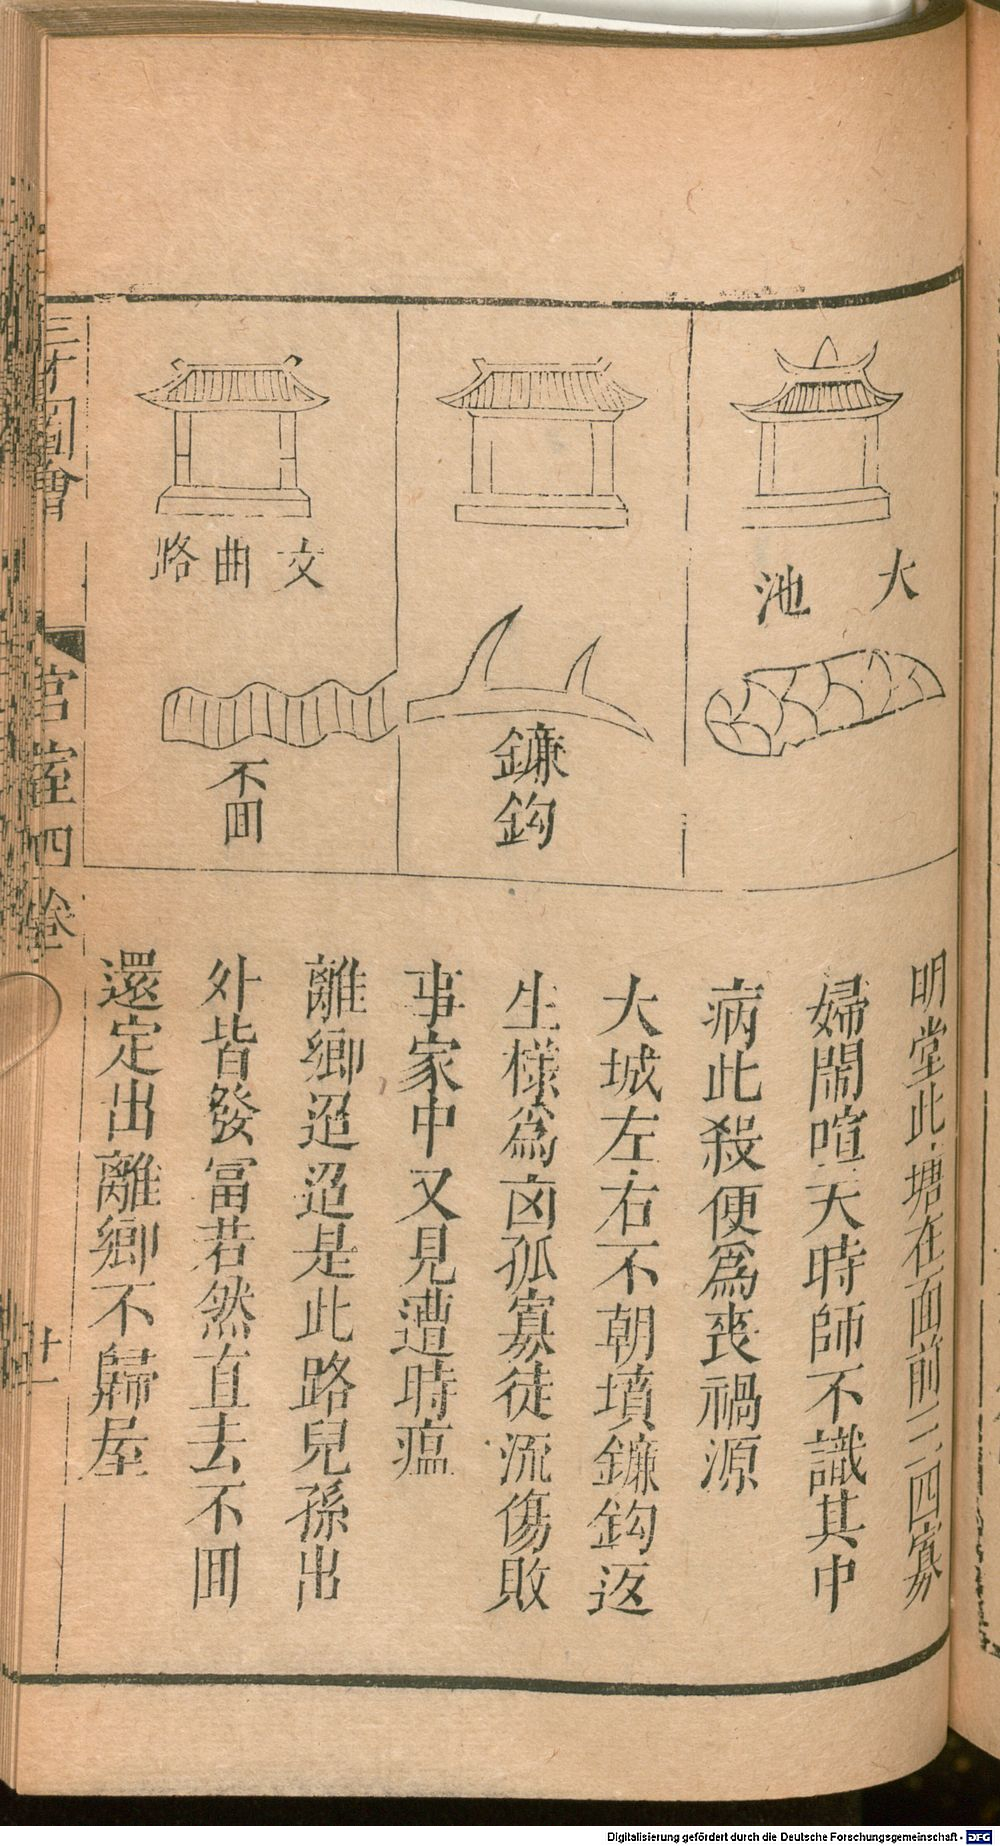 大池
鐮鈎
文曲路
不囬
明堂此塘在面前三四寡
婦鬧喧天時師不識其中
病此殺便爲喪禍源
大城左右不朝墳鐮鈎返
生樣爲凶孤寡徒流傷敗
事家中又見遭時瘟
離鄉迢迢是此路兒孫出
外皆發冨若然直去不囬
還定出離鄉不歸屋
三才圖會
宮室四卷
十一
Digitalisierung gefördert durch die Deutsche Forschungsgemeinschaft - DFG